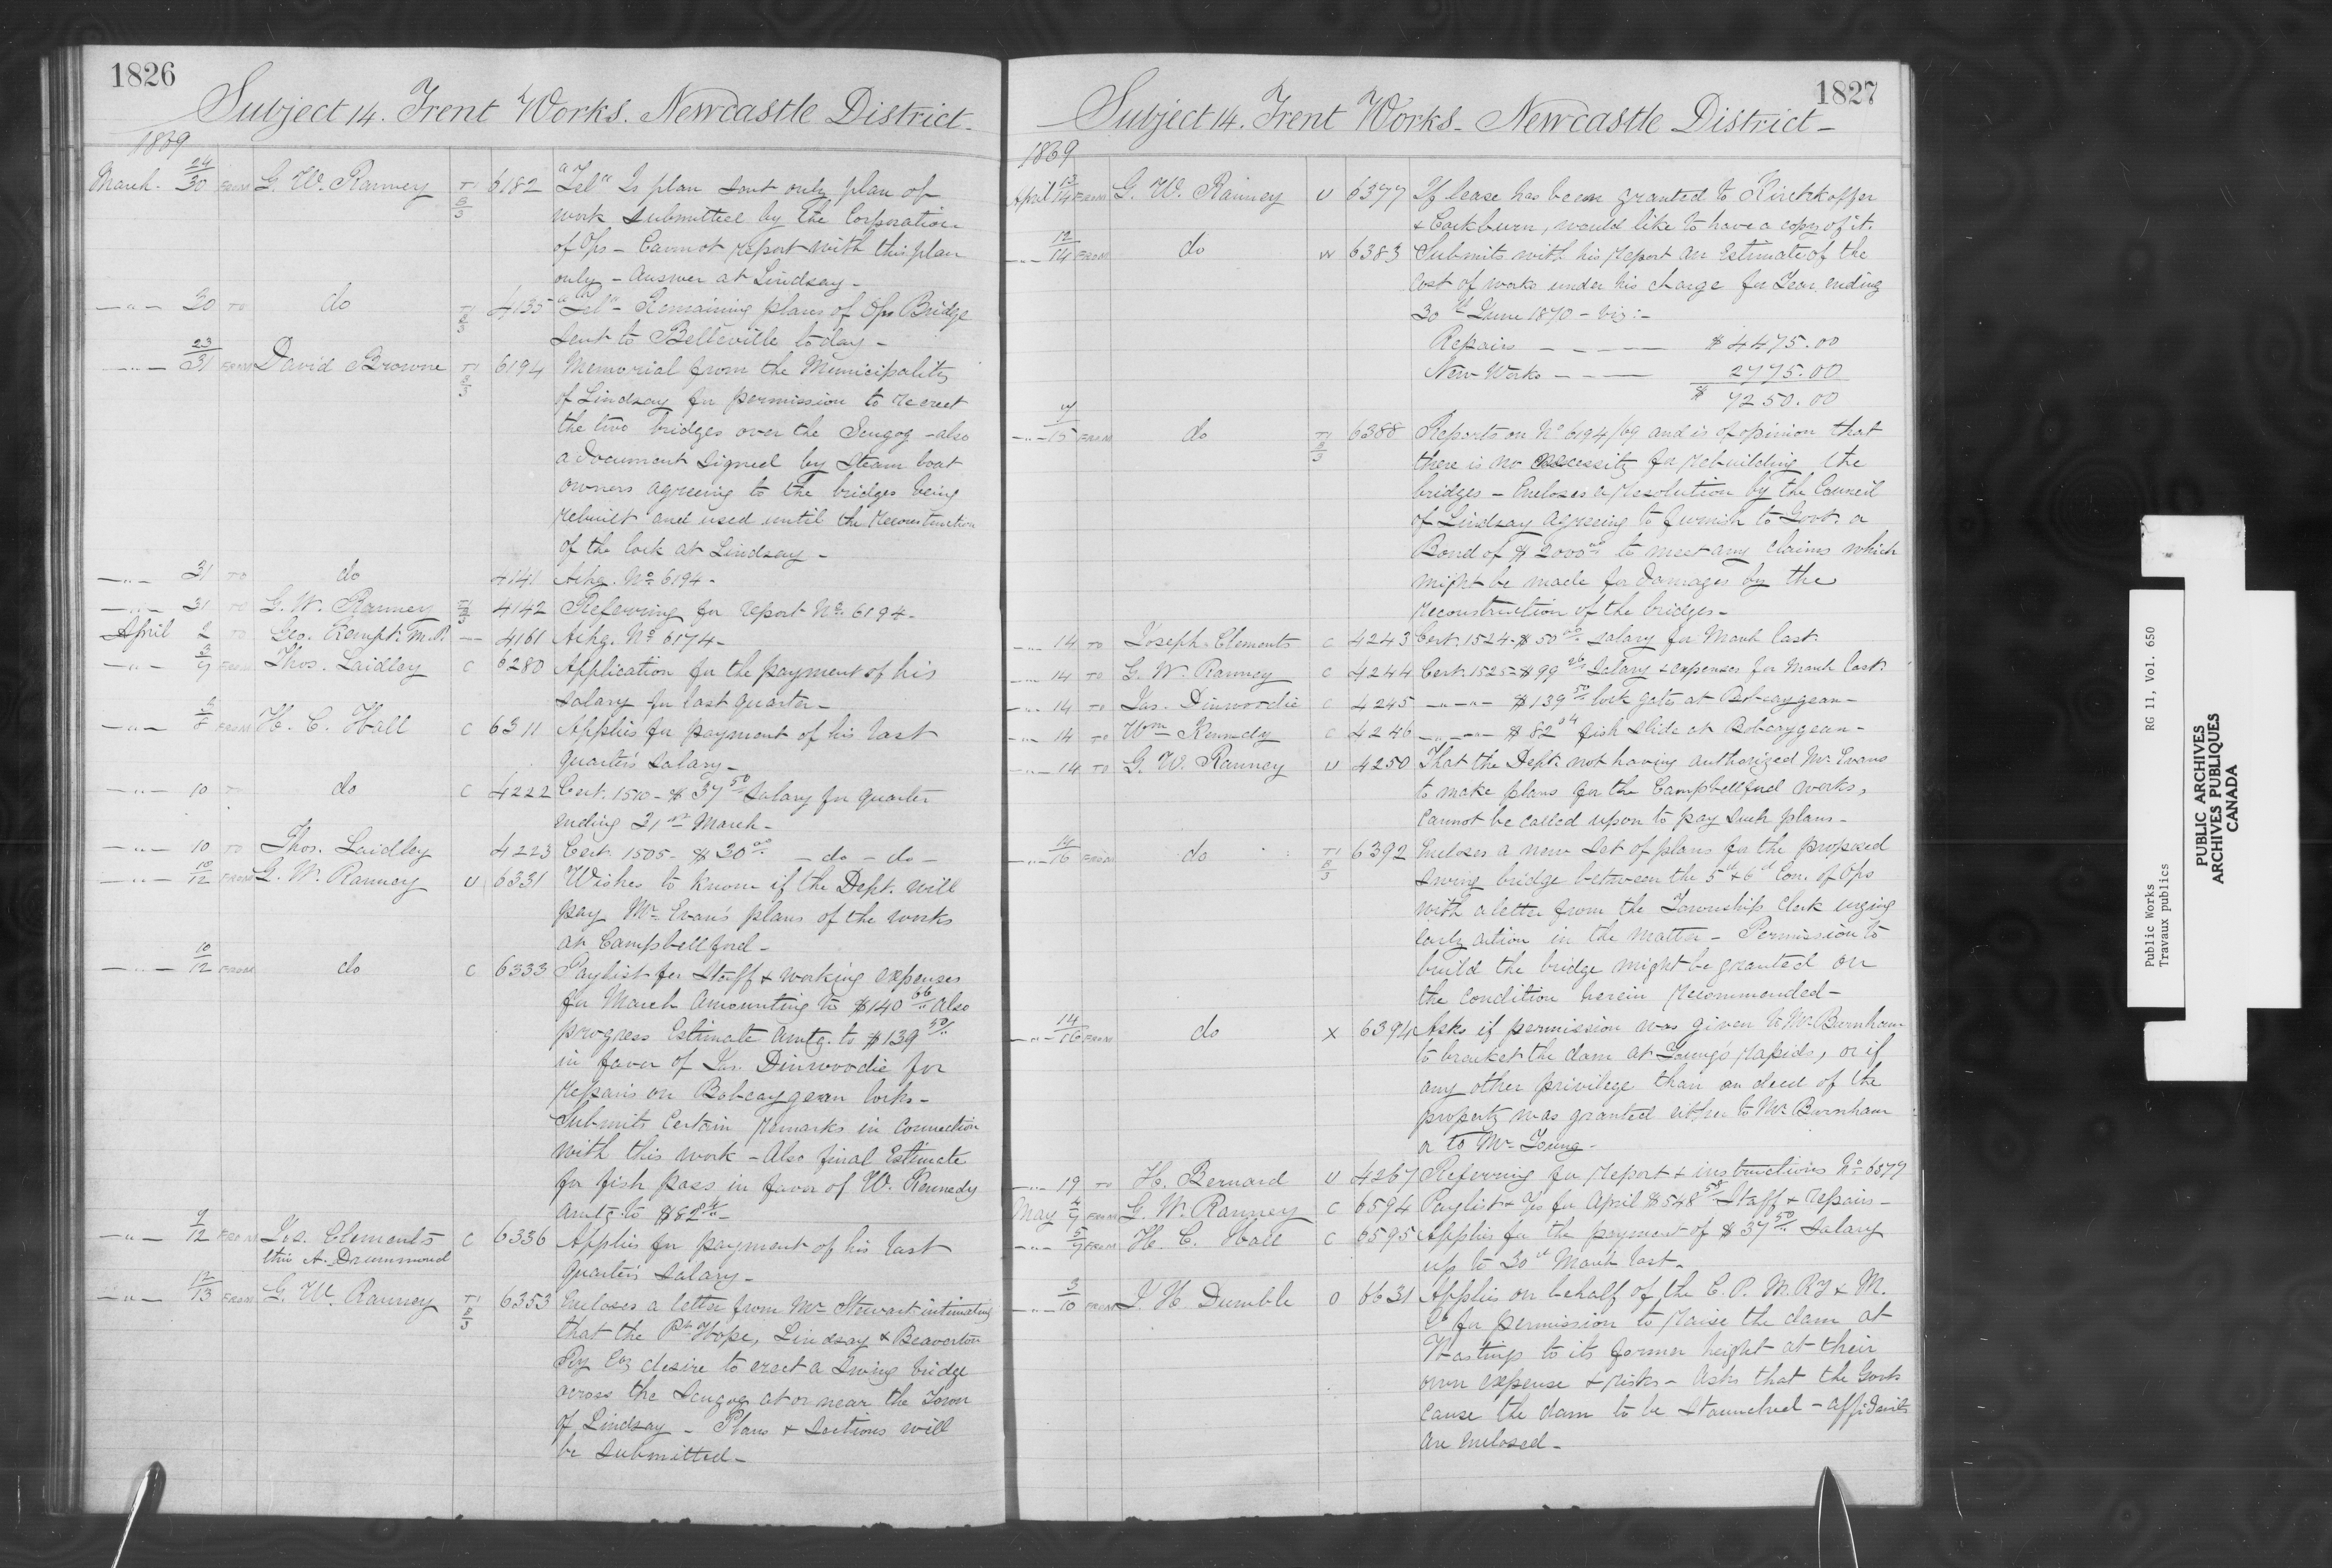 1826
Subject 14. Trent Works. Newcastle District.
1869
March. 24/30 FROM G. W. Ranney T1 B 3 6182 "Tel" Is plan sent only plan of
work submitted by the Corporation
of Ops – Cannot report with this plan
only – Answer at Lindsay –
–"– 30 TO do T1 B 3 4135 "Tel" – Remaining plans of Ops Bridge
sent to Belleville to day –
–"– 23/31 FROM David Browne T1 B 3 6194 Memorial from the Municipality
of Lindsay for permission to re erect
the two bridges over the Scugog – also
a document signed by steam boat
owners agreeing to the bridges being
rebuilt and used until the reconstruction
of the lock at Lindsay –
–"– 31 TO do 4141 Ackg. No. 6194 –
–"– 31 TO G. W. Ranney T1 B 3 4142 Referring for report No. 6194 –
April 2 TO Geo. Kempt. M.P. – 4161 Ackg. No. 6174 –
–"– 3/7 FROM Thos. Laidley C 6280 Application for the payment of his
salary for last quarter –
–"– 5/8 FROM H. C. Hall C 6311 Applies for payment of his last
quarter's salary –
–"– 10 TO do C 4222 Cert. 1510 – $37 50 Salary for quarter
ending 31st March –
–"– 10 TO Thos. Laidley 4223 Cert. 1505 – $30 00 – do – do –
–"– 10/12 FROM G. W. Ranney U 6331 Wishes to know if the Dept. will
pay Mr. Evan's plans of the works
at Campbellford –
–"– 10/12 FROM do C 6333 Paylist for Staff & working expenses
for March amounting to $140 66 Also
progress Estimate amtg. to $139 50
in favor of Jas. Dinwoodie for
repairs on Bobcaygean locks –
Submits certain remarks in connection
with this work – Also final Estimate
for fish pass in favor of W. Kennedy
amtg. to $82
–"– 7/12 FROM Jos. Clements C 6336 Applies for payment of his last
thro A. Drummond quarter's salary –
–"– 12/13 FROM G. W. Ranney T1 B 3 6353 Encloses a letter from Mr. Stewart intimating
that the Pt. Hope, Lindsay & Beaverton
Ry Coy desire to erect a swing bridge
across the Scugog at or near the Town
of Lindsay – Plans & Sections will
be submitted –
1827
Subject 14. Trent Works – Newcastle District –
1869
April 13/14 FROM G. W. Ranney U 6377 If lease has been granted to Kirchkoffer
& Cockburn, would like to have a copy of it.
–"– 12/14 FROM do W 6383 Submits with his report an Estimate of the
cost of works under his charge for Year ending
30th June 1870 – viz: –
Repairs – – – – $4475.00
New Works – – – 2775.00
$ 7250.00
–"– /15 FROM do T1 B 3 6388 Reports on No. 6194/69 and is of opinion that
there is no necessity for rebuilding the
bridges – Encloses a resolution by the Council
of Lindsay agreeing to furnish to Govt. a
Bond of $2000 00 to meet any claims which
might be made for damages by the
reconstruction of the bridges –
–"– 14 TO Joseph Clements C 4243 Cert. 1524 – $50 00 salary for March last.
–"– 14 TO G. W. Ranney C 4244 Cert. 1525 – $99 26 Salary & expenses for March last.
–"– 14 TO Jas. Dinwoodie C 4245 –"–"– $139 50 lock gate at Bobcaygean –
–"– 14 TO Wm Kennedy C 4246 –"–"– $82 04 fish slide at Bobcaygean –
–"– 14 TO G. W. Ranney U 4250 That the Dept. not having authorized Mr. Evans
to make plans for the Campbellford works,
cannot be called upon to pay such plans –
–"– 14/16 FROM do T1 B 3 6392 Encloses a new set of plans for the proposed
swing bridge between the 5th & 6th Con. of Ops
with a letter from the Township Clerk urging
early action in the matter – Permission to
build the bridge might be granted on
the condition herein recommended –
–"– 14/16 FROM do X 6394 Asks if permission was given to Mr. Burnham
to bracket the dam at Young's rapids, or if
any other privilege than on deed of the
property was granted either to Mr. Burnham
or to Mr. Young –
–"– 19 TO H. Bernard U 4267 Referring for report & instructions No. 6377
May 4/7 FROM G. W. Ranney C 6594 Paylist & for April $548 58 Staff & repairs –
–"– 5/7 FROM H. C. Hall C 6595 Applies for the payment of $37 50 salary
up to 30th March last –
–"– 3/10 FROM J. H. Dumble O 6631 Applies on behalf of the C. P. M. Ry & M.
Co for permission to raise the dam at
Hastings to its former height at their
own expense & risks – Asks that the Govt.
cause the dam to be staunched – affidavits
are enclosed –
Public Works RG 11, Vol. 650
Travaux publics
PUBLIC ARCHIVES
ARCHIVES PUBLIQUES
CANADA